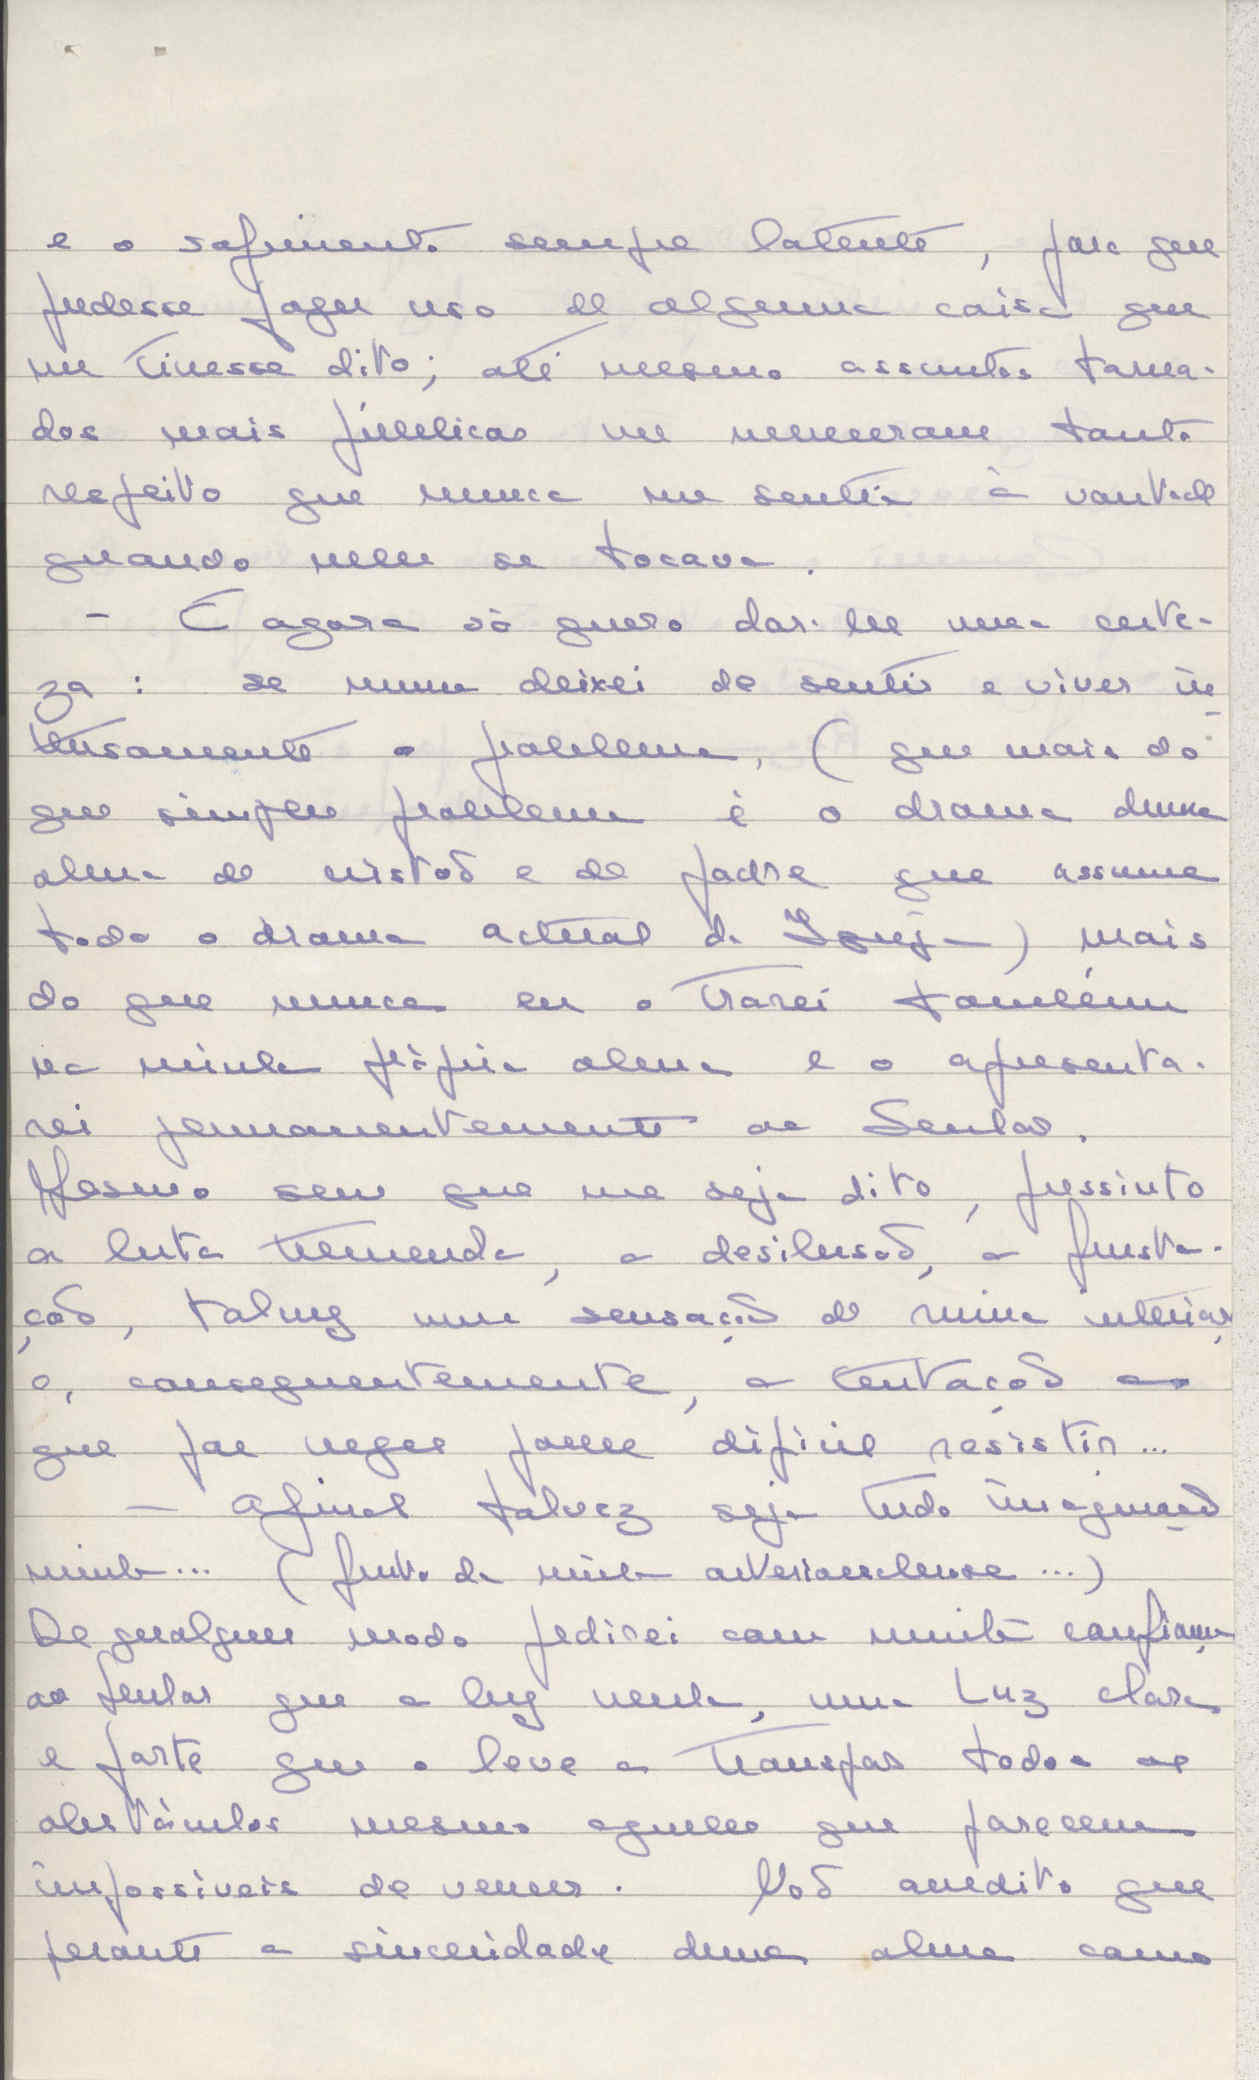 e o sofrimento sempre latente, para que
pudesse fazer uso de alguma coisa que
me tivesse dito; até mesmo assuntos torna-
dos mais públicos me mereceram tanto
respeito que nunca me senti à vontade
quando neles se tocava.
- E agora só quero dar-lhe uma certe-
za: se nunca deixei de sentir e viver in
tensamente o problema, (que mais do
que simples problema é o drama duma
alma de cristão e de padre que assume
todo o drama actual da Igreja) mais
do que nunca eu o trarei também
na minha própria alma e o apresenta-
rei permanentemente ao Senhor.
Mesmo sem que me seja dito, pressinto
a luta tremenda, a desilusão, a frustra-
ção, talvez uma sensação de ruína interior
e, consequentemente, a tentação a
que por vezes parece difícil resistir...
- Afinal talvez seja tudo imaginação
minha... (fruto da minha arteriosclerose...)
De qualquer modo pedirei com muita confiança
ao Senhor que a luz venha, uma Luz clara
e forte que o leve a transpor todos os
obstáculos mesmo aqueles que parecem
impossíveis de vencer. Não acredito que
perante a sinceridade duma alma como